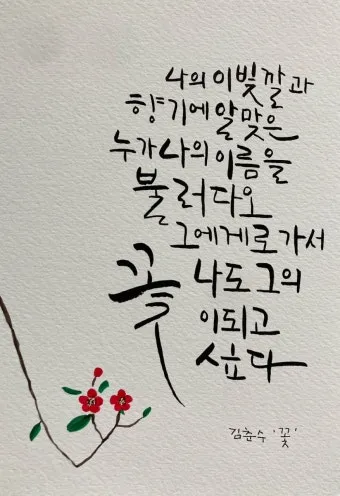 나의 이 빛깔과
향기에 알맞은
누가 나의 이름을
불러다오
그에게로 가서
나도 그의
꽃
이 되고
싶다
김춘수 '꽃'